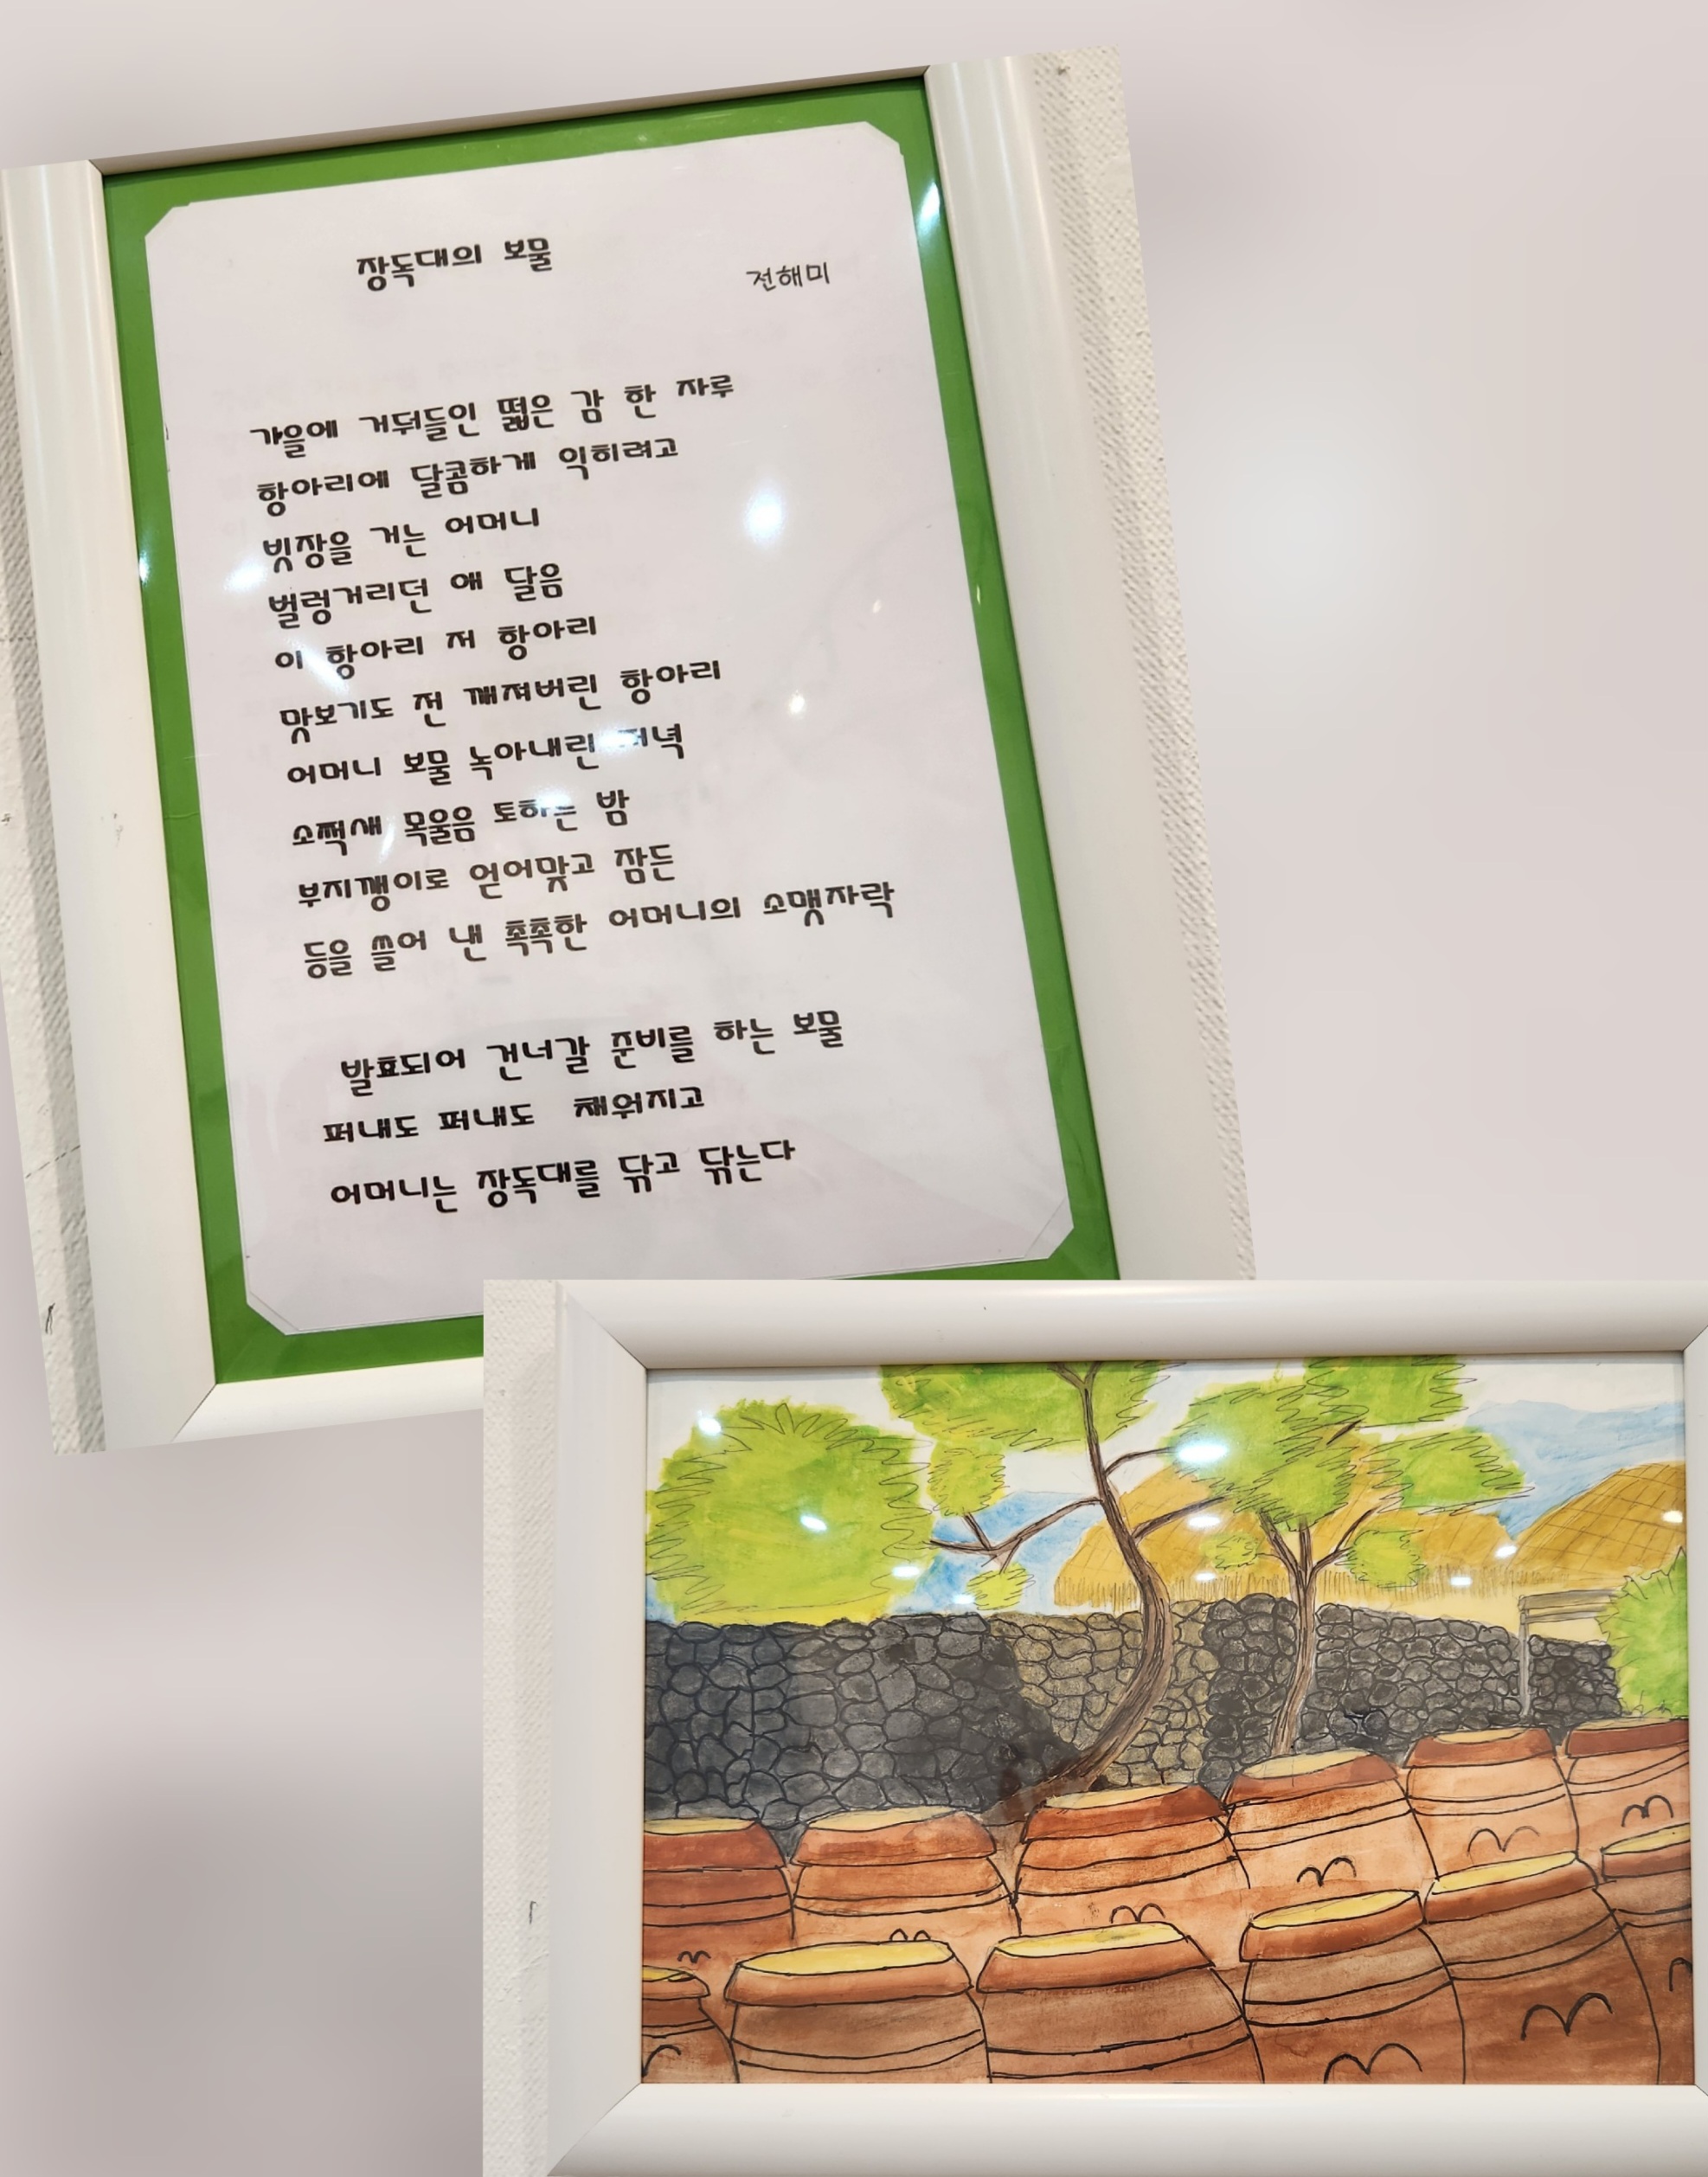 장독대의 보물
전해미
가을에 거둬들인 떫은 감 한 자루
항아리에 달콤하게 익히려고
빗장을 거는 어머니
벌렁거리던 애 달음
이 항아리 저 항아리
맛보기도 전 깨져버린 항아리
어머니 보물 녹아내린 저녁
소쩍새 목울음 토하는 밤
부지깽이로 얻어맞고 잠든
등을 쓸어 낸 촉촉한 어머니의 소맷자락
발표되어 건너갈 준비를 하는 보물
퍼내도 퍼내도 채워지고
어머니는 장독대를 닦고 닦는다